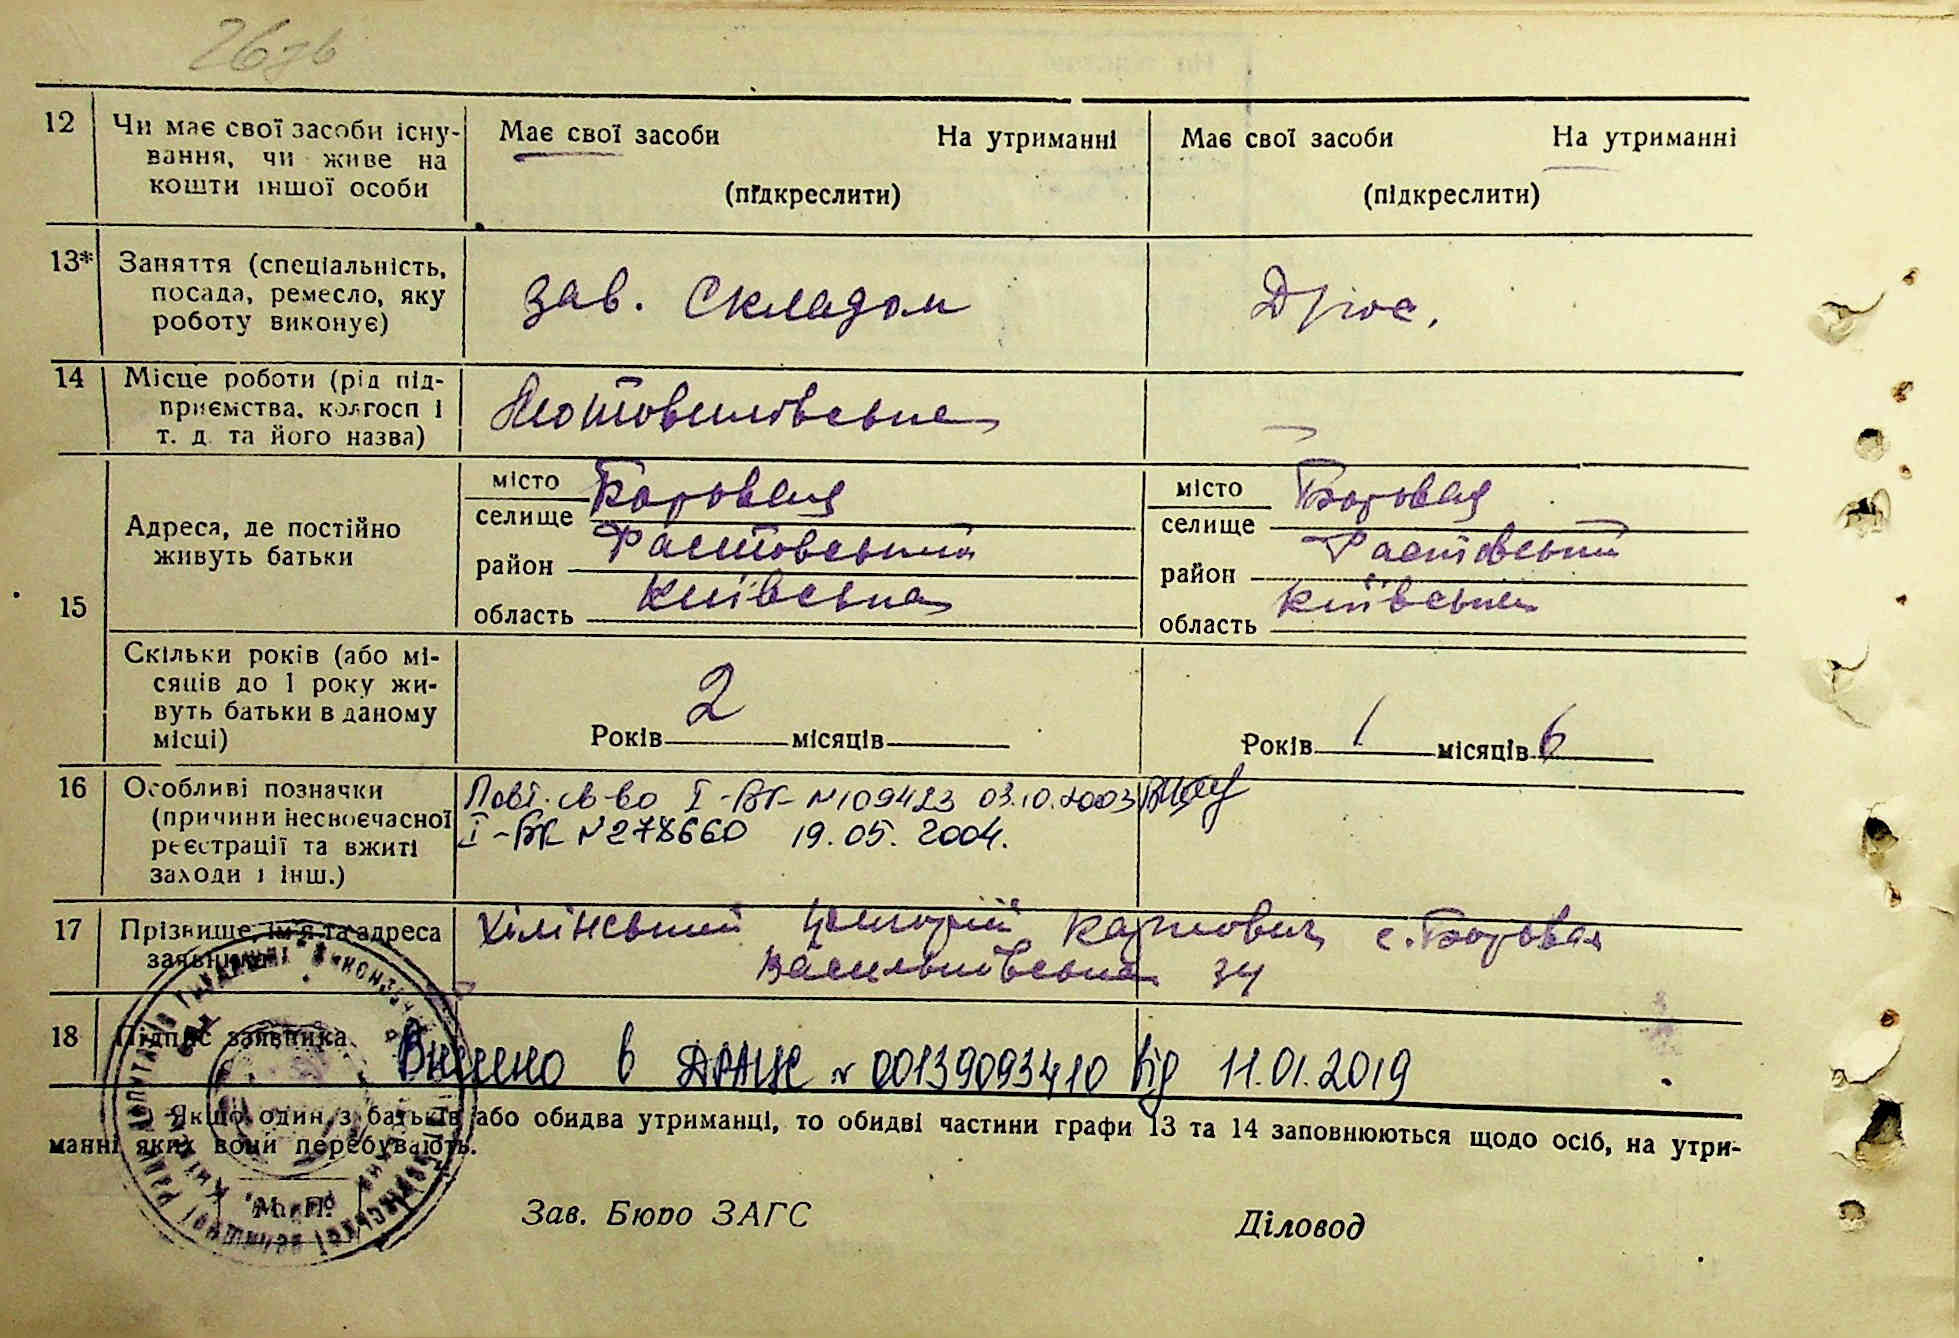 26 зв
12 Чи має свої засоби існу- Має свої засоби На утриманні Має свої засоби На утриманні
вання, чи живе на
кошти іншої особи (підкреслити) (підкреслити)
13* Заняття (спеціальність,
посада, ремесло, яку зав. складом
роботу виконує)
14 Місце роботи (рід під-
приємства, колгосп і
т. д. та його назва)
місто Боровая місто Боровая
селище селище
Адреса, де постійно
живуть батьки район Фастовський район Фастовський
15
область Київська область Київська
Скільки років (або мі-
сяців до 1 року жи-
вуть батьки в даному Років 2 місяців Років 1 місяців 6
місці)
16 Особливі позначки Повт. св-во І-БК №109423 03.10.2003
(причини несвоєчасної І-БК №278660 19.05.2004.
реєстрації та вжиті
заходи і інш.)
17 Прізвище, ім'я та адреса Хілінський Карпович с. Боровая
заявника Васильківська
18 Підпис заявника Внесено в ДРАЦС № 00139093410 від 11.01.2019
Якщо один з батьків або обидва утриманці, то обидві частини графи 13 та 14 заповнюються щодо осіб, на утри-
манні яких вони перебувають.
М. П. Зав. Бюро ЗАГС Діловод